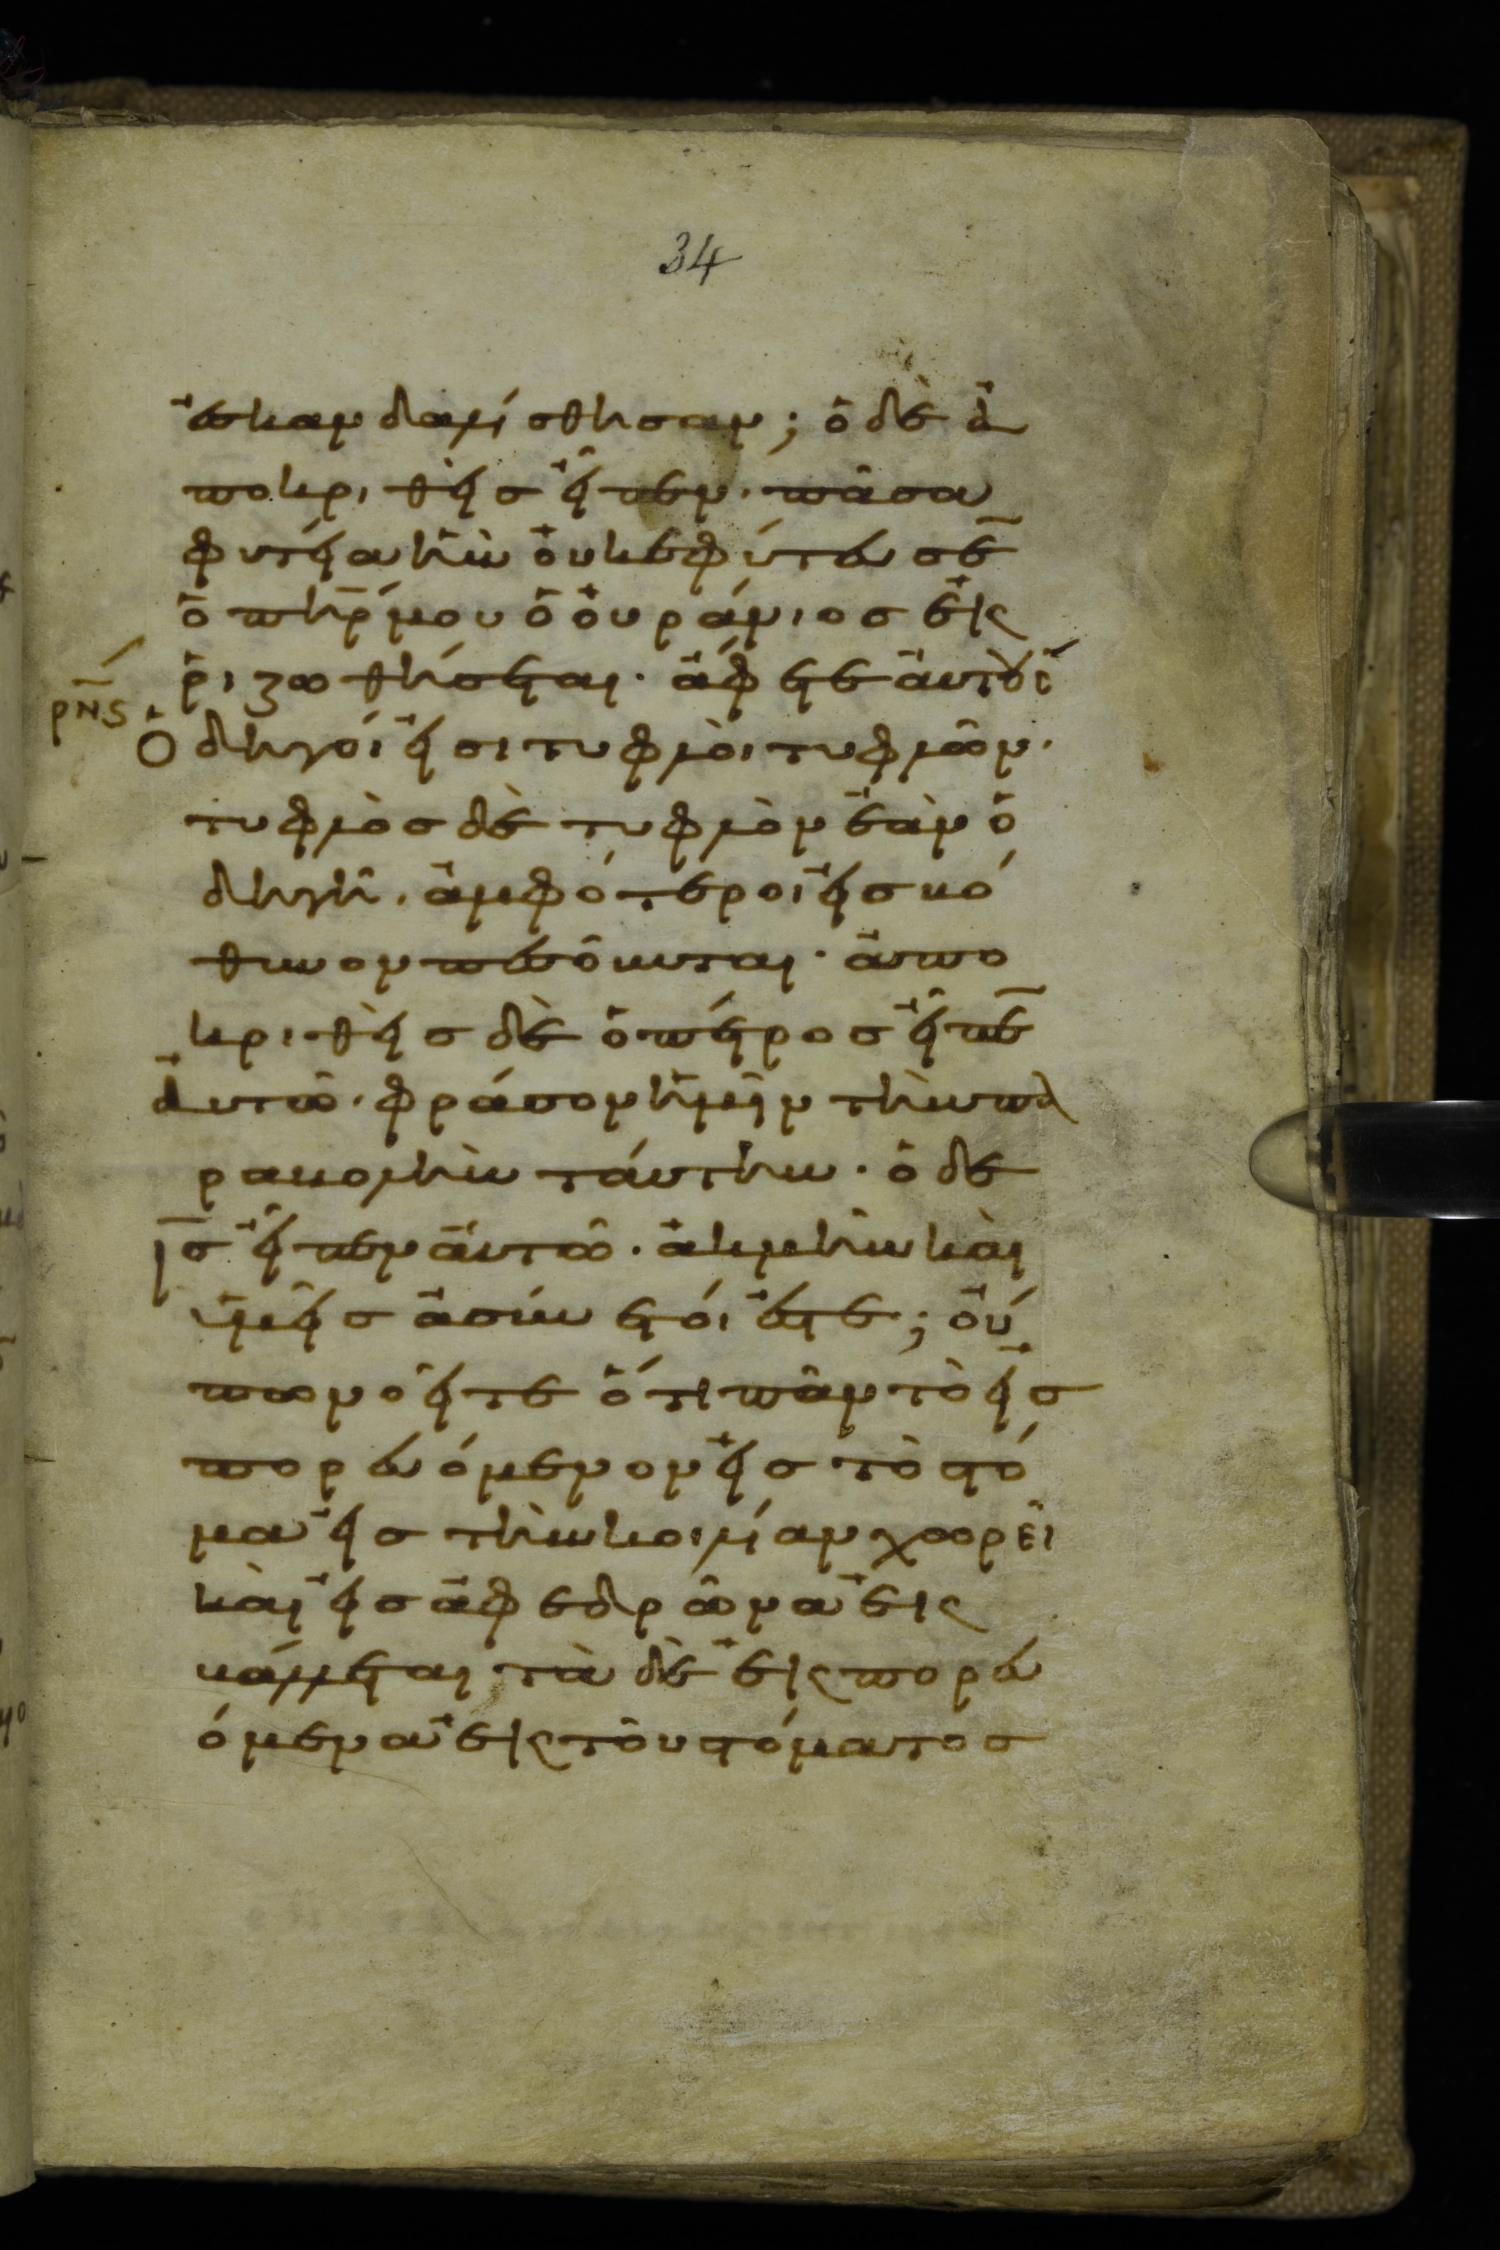 34
ἐσκανδαλίσθησαν; ὁ δὲ ἀ
ποκριθεὶς εἶπεν· πᾶσα
φυτεία ἣν οὐκ ἐφύτευσε̅
ὁ πηρ̅ μου ὁ οὐράνιος ἐκ
ριζωθήσεται· ἄφετε αὐτούς
ρν̅ς
ὁδηγοί εἰσι τυφλοὶ τυφλῶν·
τυφλὸς δὲ τυφλὸν ἐὰν ὁ
δηγῆ, ἀμφότεροι εἰς βό
θυνον πεσοῦνται· ἀπο
κριθεὶς δὲ ὁ πέτρος εἶπε̅
αὐτῶ· φράσον ἡμῖν τὴν πα
ραβολὴν ταύτην· ὁ δὲ
ις̅ εἶπεν αὐτῶ· ἀκμὴν καὶ
ὑμεῖς ἀσύνετοί ἐστε; οὔ
πω νοεῖτε ὅτι πᾶν τὸ εἰσ
πορευόμενον εἰς τὸ στό
μα εἰς τὴν κοιλίαν χωρεῖ
καὶ εἰς ἀφεδρῶνα ἐκ
βάλλεται τὰ δὲ ἐκπορευ
όμενα ἐκ τοῦ στόματος